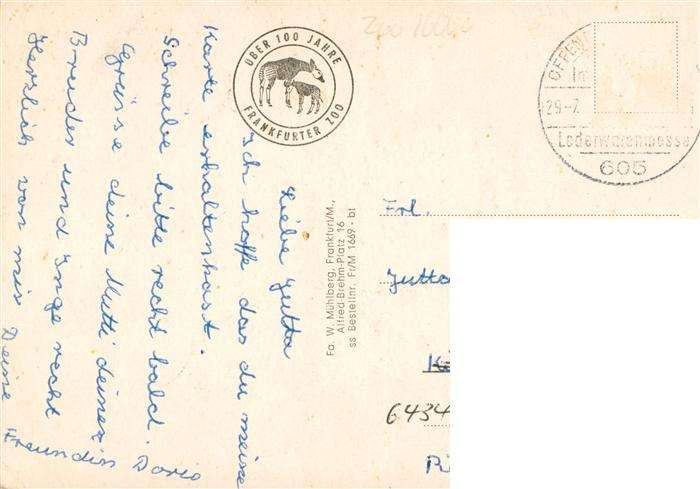 Liebe Jutta
Ich hoffe das du meine
Karte erhaltenhast.
Schreibe bitte recht bald.
Grüsse deine Mutti deinen
Bruder und Inge recht
Herzlich von mir Deine
Freundin Doris
ÜBER 100 JAHRE
FRANKFURTER ZOO
Fa. W. Mühlberg, Frankfurt/M.,
Alfred-Brehm-Platz 16
ss Bestellnr. Fr/M 1669 - bt
Zoo
OFFEN
In
29-7.
Lederwarenmesse
605
Frl.
Jutta
6434